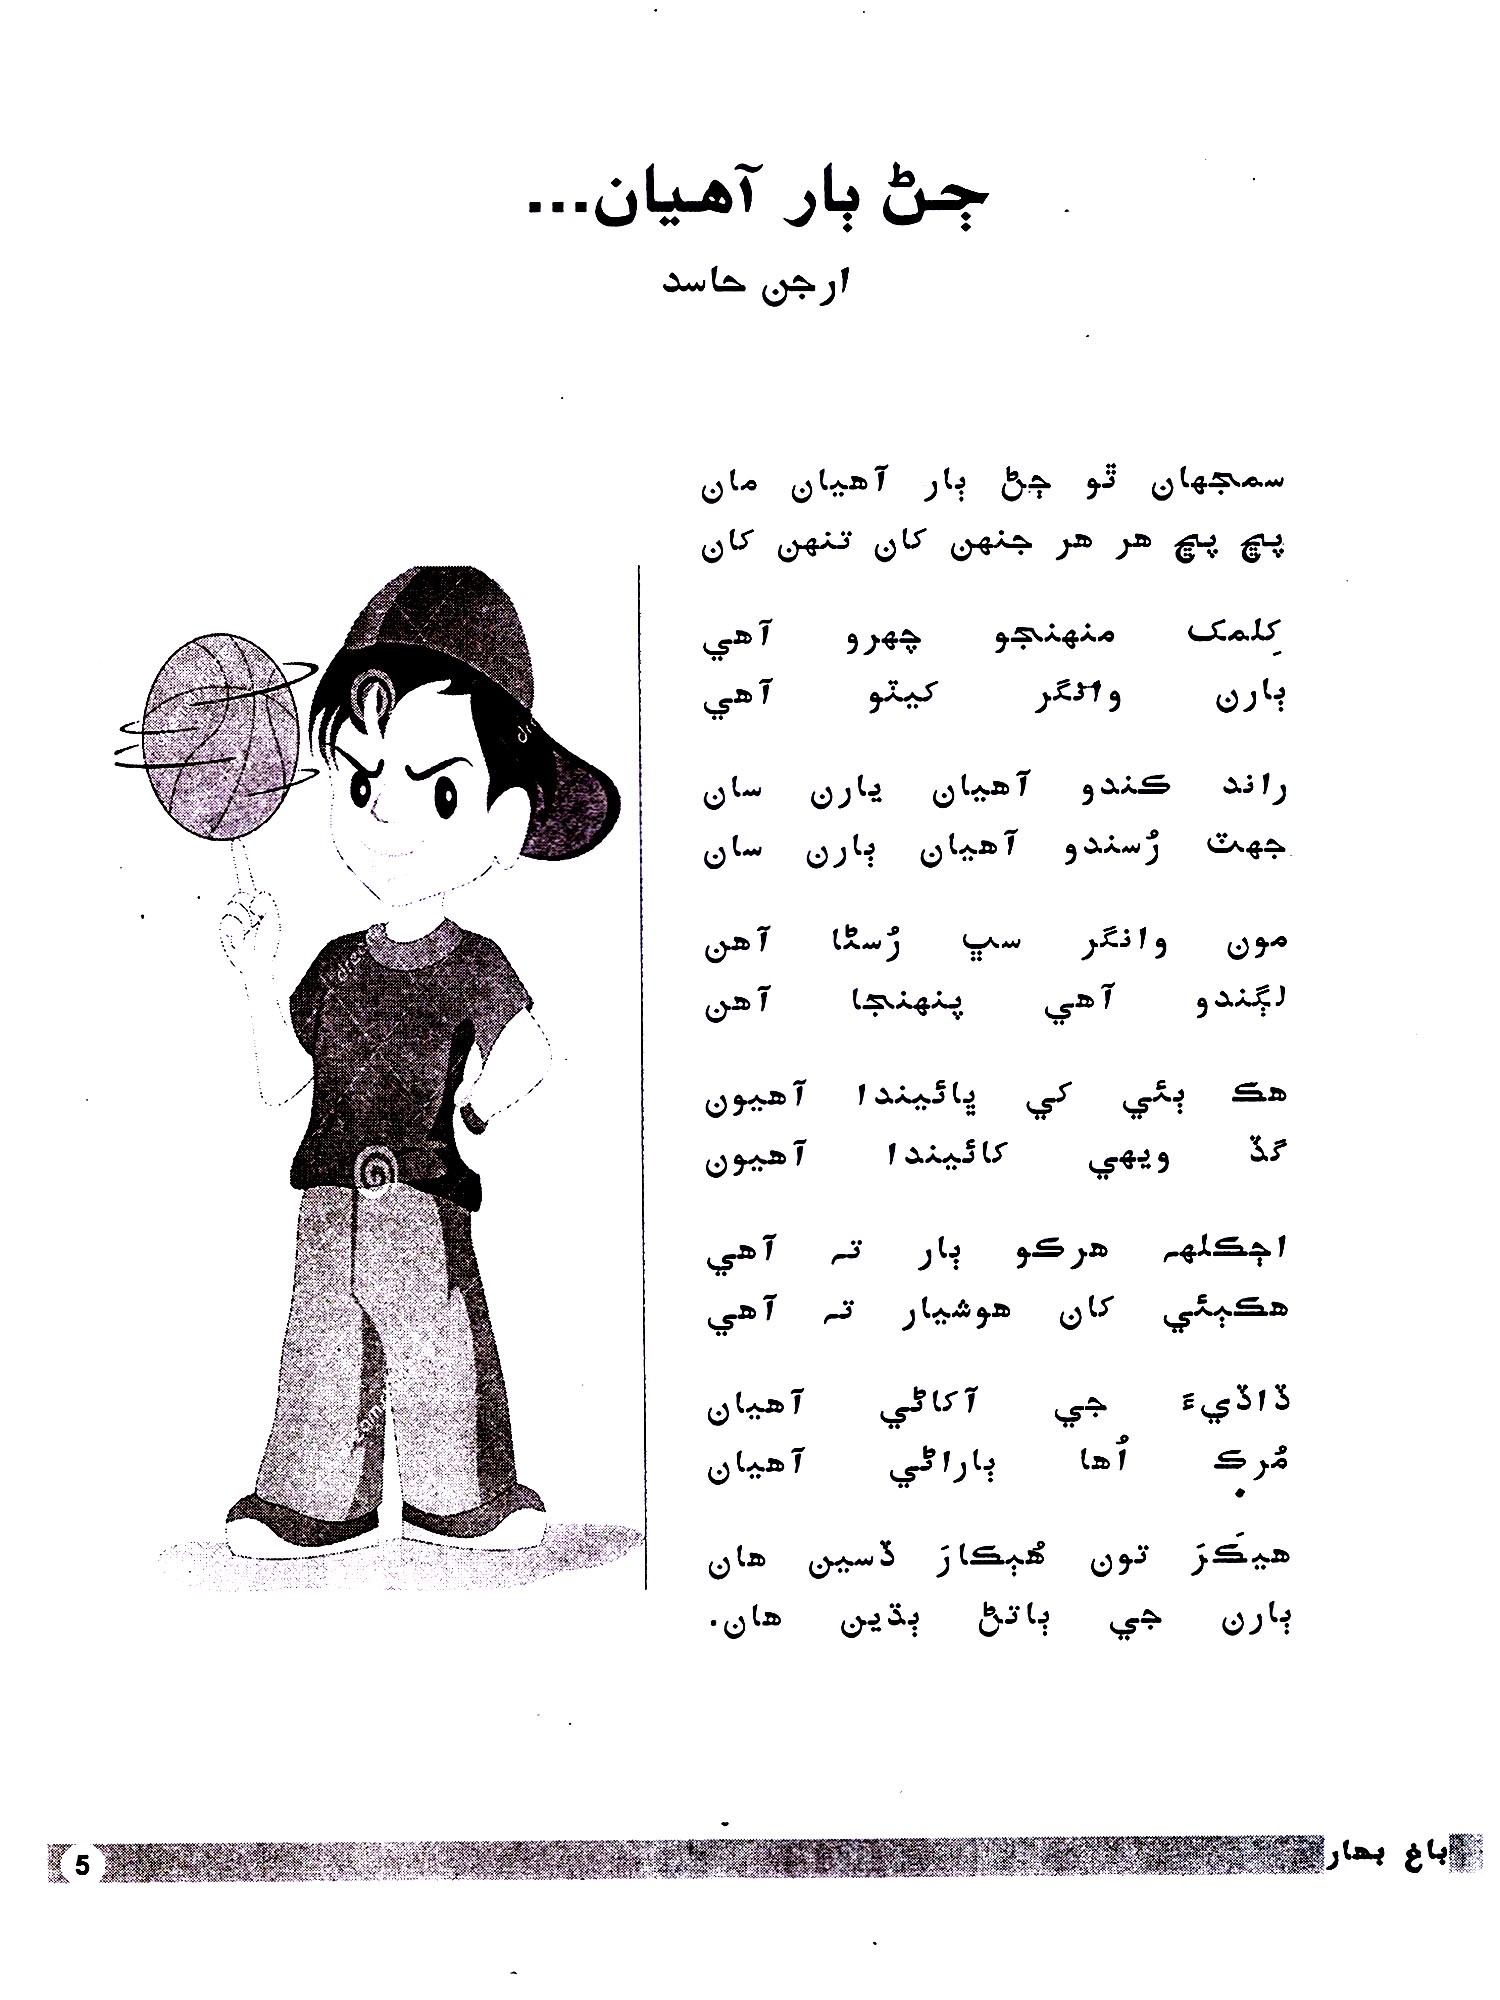 ڄڻ ٻار آهيان...
ارجن حاسد
سمجهان ٿو ڄڻ ٻار آهيان مان
پڇ پڇ هر هر جنهن کان تنهن کان
کِلمک منهنجو چهرو آهي
ٻارن وانگر کيٽو آهي
راند ڪندو آهيان يارن سان
جهٽ رُسندو آهيان ٻارن سان
مون وانگر سڀ رُسڻا آهن
لڳندو آهي پنهنجا آهن
هڪ ٻئي کي ڀائيندا آهيون
گڏ ويهي کائيندا آهيون
اڄڪلهہ هرڪو ٻار تہ آهي
هڪٻئي کان هوشيار تہ آهي
ڏاڏيءَ جي آکاڻي آهيان
مُرڪ اُها ٻاراڻي آهيان
هيڪَرَ تون هُٻڪارَ ڏسين هان
ٻارن جي ٻاتڻ ٻڌين هان.
باغ بهار
5